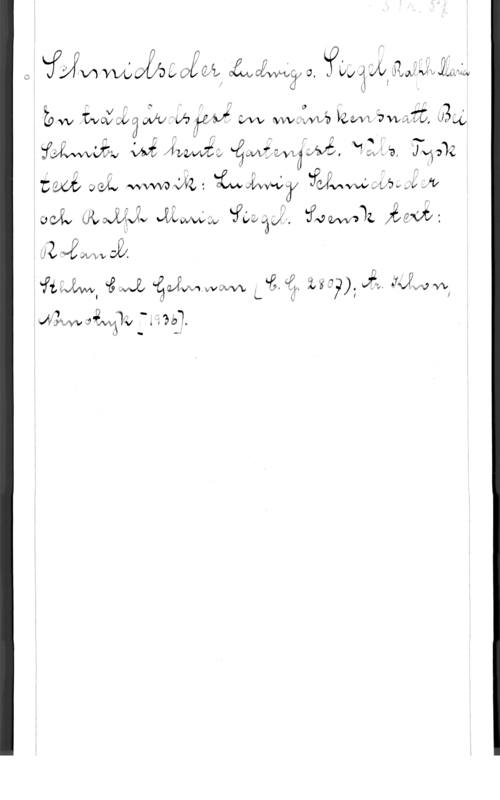 Schmidseder, Ludwig o. Siegel, Ralph Maria
En trädgårdsfest en månskensnatt. Bei
Schmitz ist heute Gartenfest. Vals. Tysk
text och musik: Ludwig Schmidseder
och Ralph Maria Siegel. Svensk text:
Roland.
Sthlm, Carl Gehrman (C. G. 2807); tr. Khvn,
[1936].